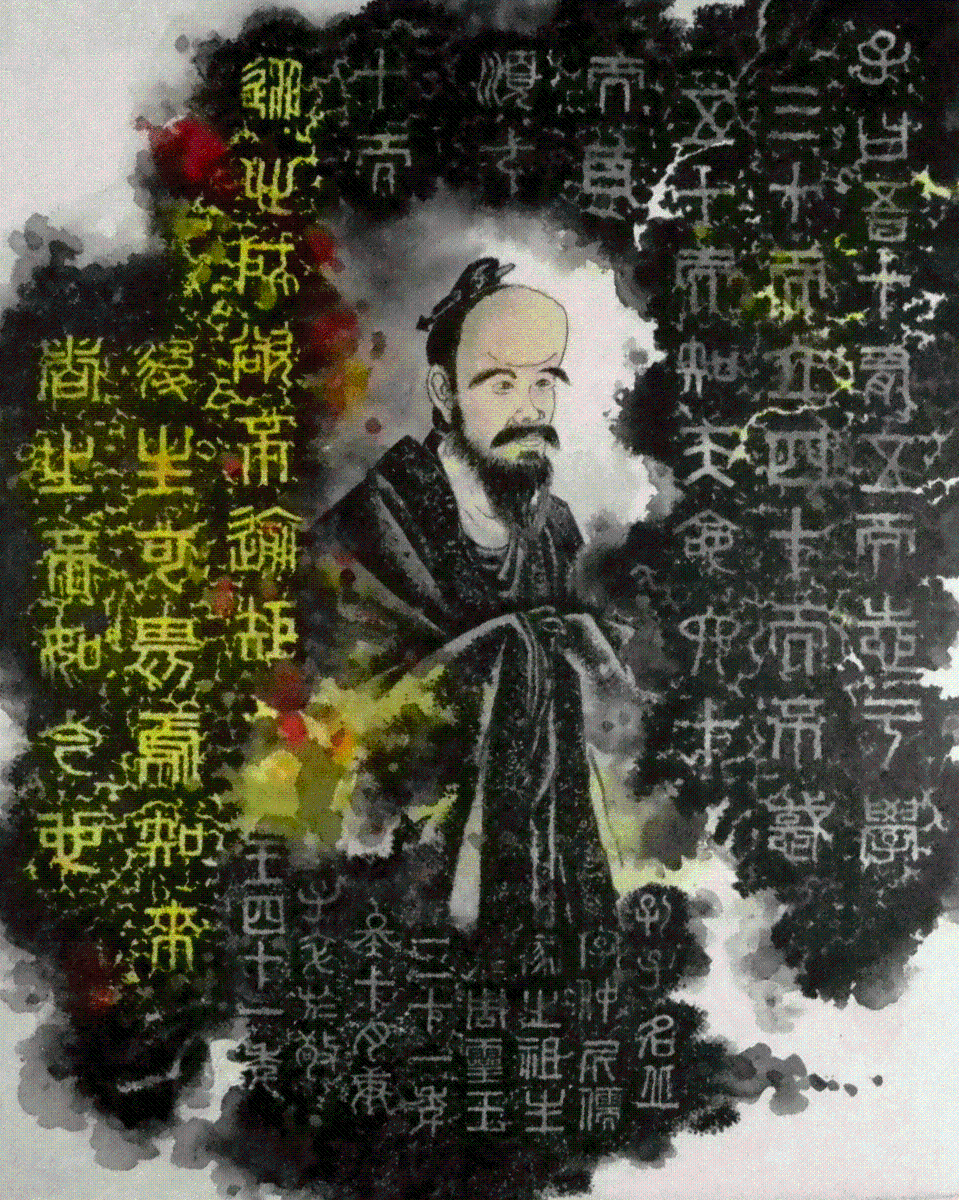 子曰吾十有五而志于學
三十而立四十而不惑
五十而知天命六十
而耳
順七
十而
從心所欲不逾矩
後生可畏焉知來
者之不如今也
孔子名丘
字仲尼儒
家之祖生
於周靈王
二十一年
冬十月庚
子卒於敬
王四十一年